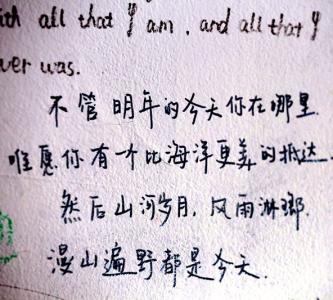 ith all that I am, and all that I
ver was.
不管明年的今天你在哪里.
唯愿你有个比海洋更美的抵达.
然后山河岁月,风雨淋瑯.
漫山遍野都是今天.